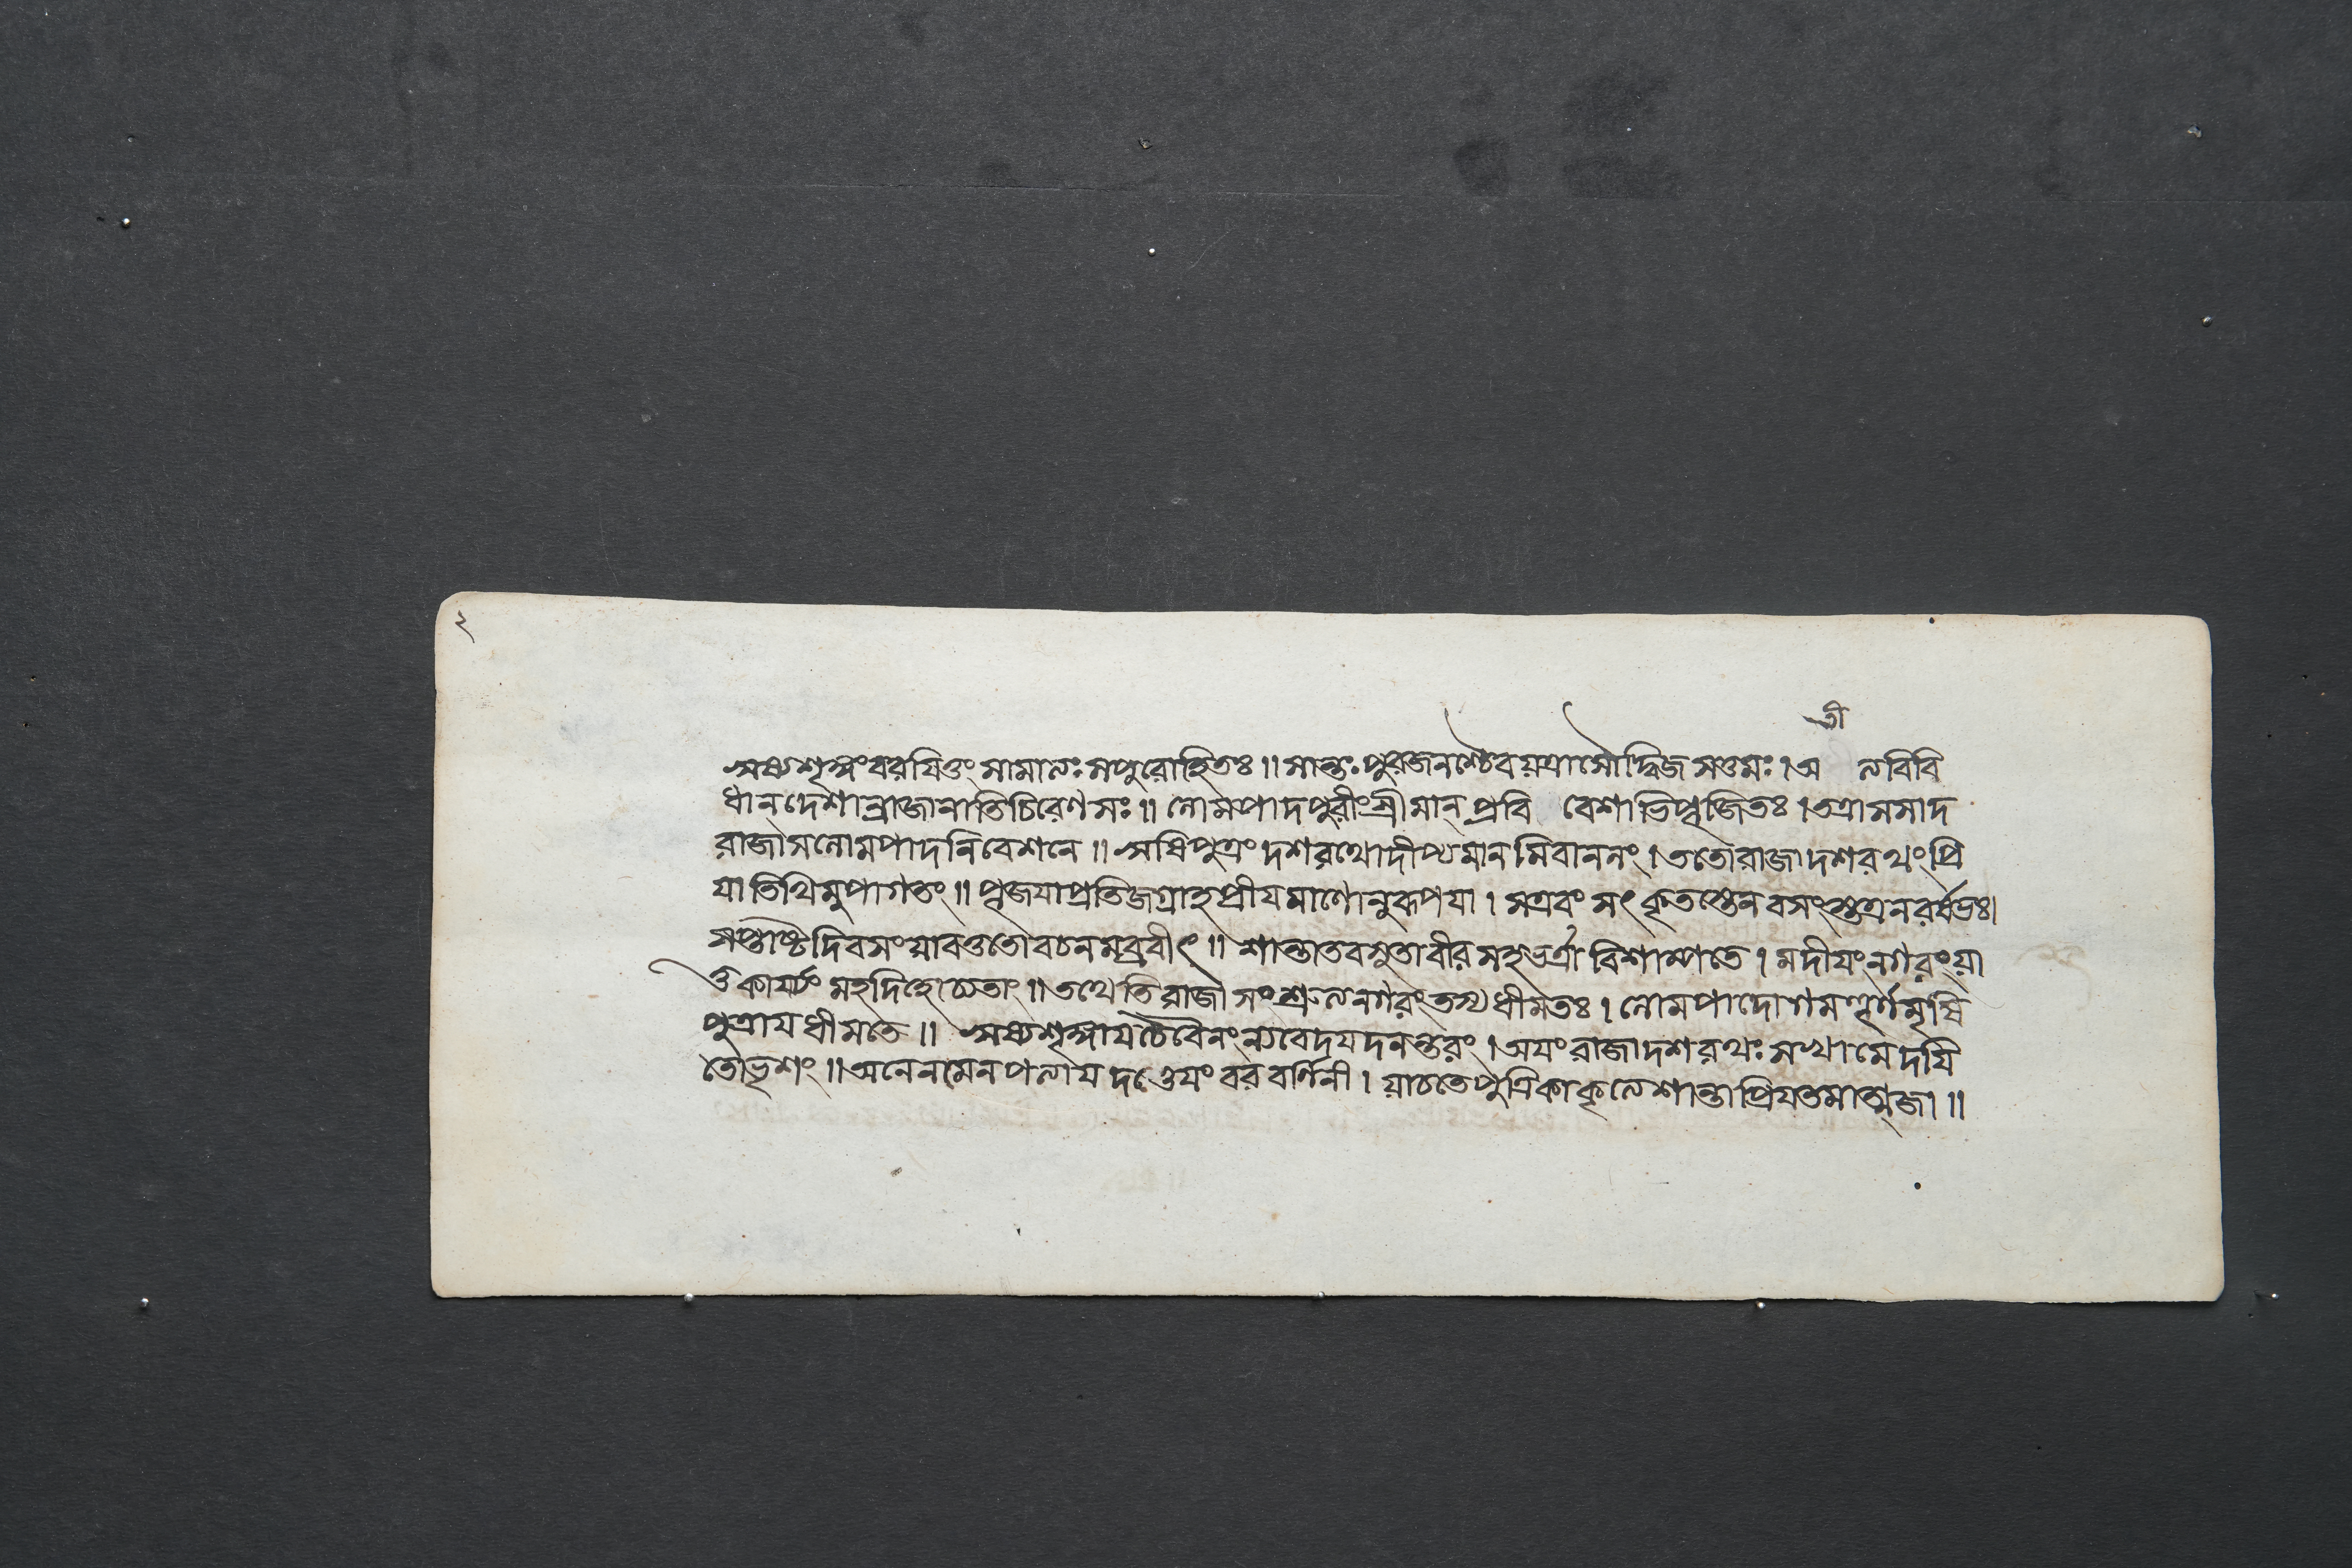 তী
ঋষ্যশৃঙ্গংবরযিতুং সামাত্যঃ সপুরোহিতঃ॥ সান্তঃপুরজনশ্চৈবয়ত্রাসৌদ্বিজসত্তমঃ। অ ত্যবিবি
ধান্দেশান্রাজানাতিচিরেণসঃ॥ লোমপাদপুরীংশ্রীমান্প্রবি বেশাভিপূজিতঃ। তত্রাসসাদ
রাজাসলোমপাদনিবেশনে॥ ঋষিপুত্রংদশরথোদীপ্যমানমিবাননং। ততোরাজাদশরথংপ্রি
যাতিথিমুপাগতং॥ পূজযাপ্রতিজগ্রাহপ্রীযমাণোনুরূপযা। সএবংসৎকৃতস্তেনবসংস্তত্রনরর্ষভঃ।
সপ্তাষ্টদিবসংয়াবত্ততোবচনমব্রবীৎ॥ শান্তাতবসুতাবীরসহভর্ত্রাবিশাম্পতে। মদীযংনগরংয়া
তুকার্য্যংমহদিহোদ্যতাং॥ তথেতিরাজাসংশ্রুত্যনগরংতস্যধীমতঃ। লোমপাদোগমত্তূর্ণমৃষি
পুত্রাযধীমতে॥ ঋষ্যশৃঙ্গাযচৈবৈনংন্যবেদযদনন্তরং। অযংরাজাদশরথঃসখামেদযি
তোভৃশং॥ অনেনমেনপত্যাযদত্তেযংবরবর্ণিনী। য়াচতেপুত্রিকাকৃত্যেশান্তাপ্রিযতমাত্মজা॥